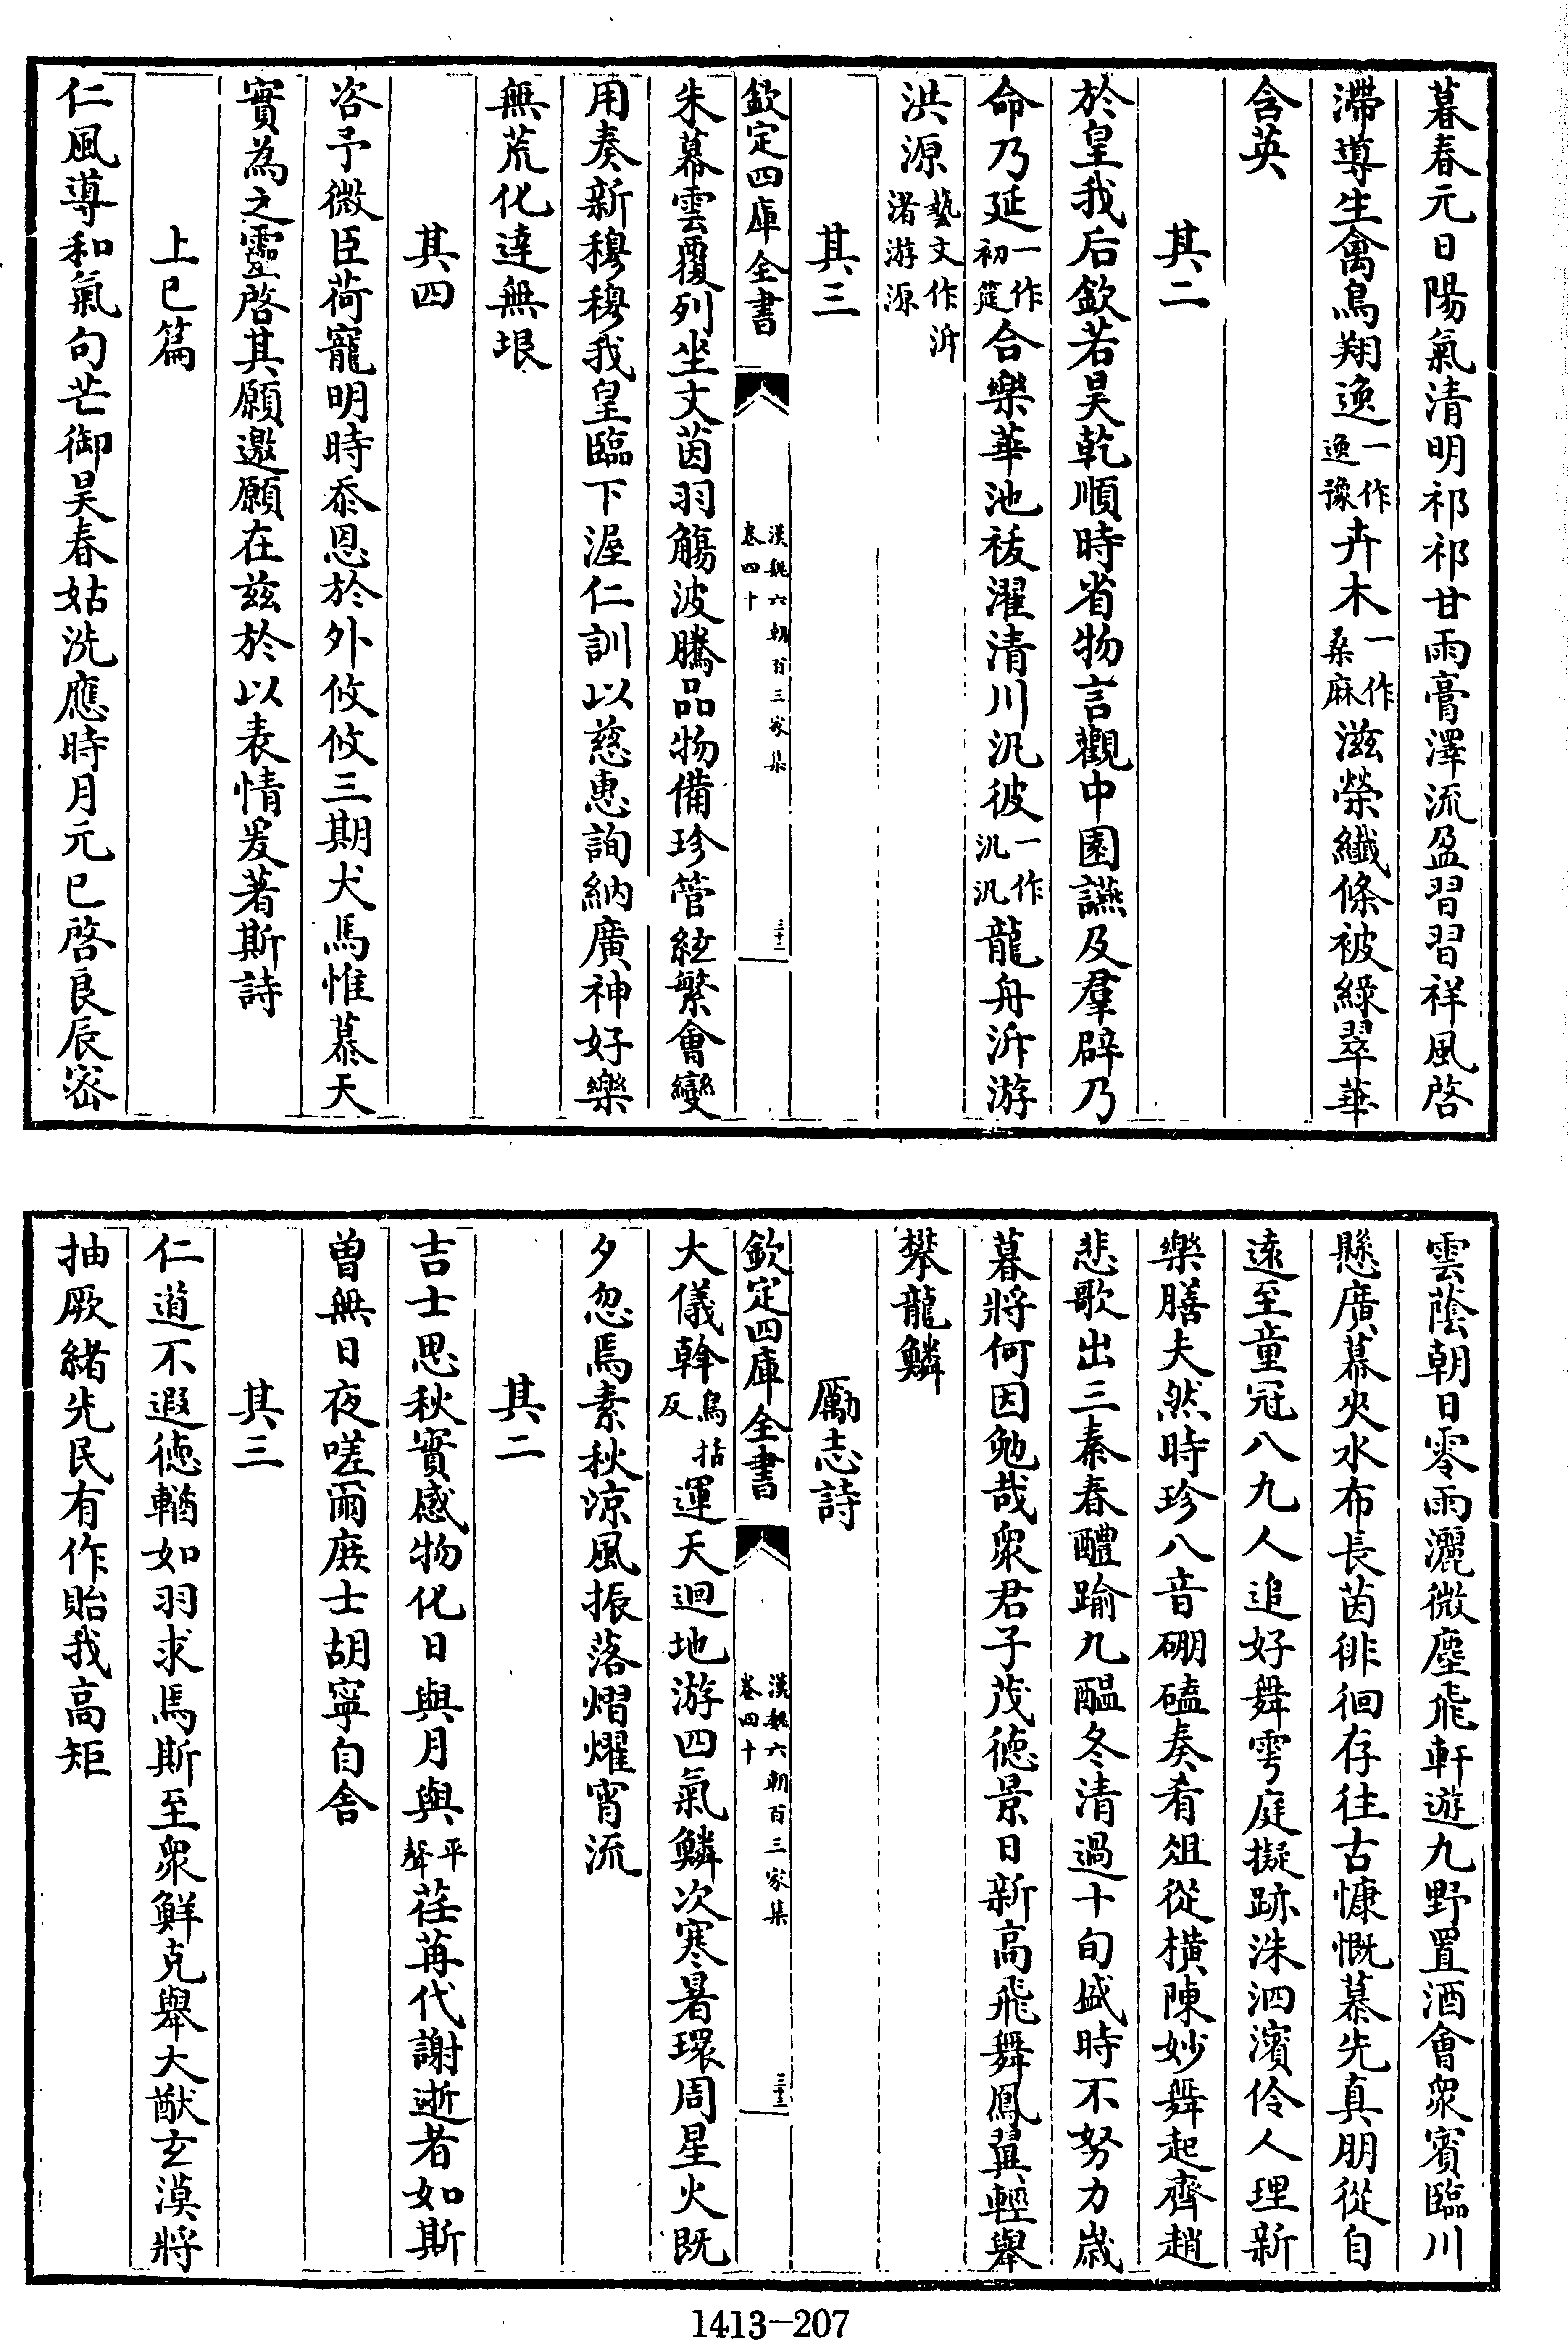 暮春元日陽氣清明祁祁甘雨膏澤流盈習習祥風啓
滯導生禽鳥翔逸一作逸豫卉木一作桑麻滋榮纎條被緑翠華
含英
其二
於皇我后欽若昊乾順時省物言觀中園讌及羣辟乃
命乃延一作初筵合樂華池祓濯清川汎彼一作汎汎龍舟泝游
洪源藝文作泝渚游源
其三
欽定四庫全書 漢魏六朝百三家集卷四十 三十二
朱幕雲覆列坐文茵羽觴波騰品物備珍管絃繁會變
用奏新穆穆我皇臨下渥仁訓以慈惠詢納廣神好樂
無荒化達無垠
其四
咨予微臣荷寵明時忝恩於外攸攸三期犬馬惟慕天
實為之靈啓其願邀願在兹於以表情爰著斯詩
上巳篇
仁風導和氣句芒御昊春姑洗應時月元巳啓良辰宻
雲蔭朝日零雨灑微塵飛軒遊九野置酒會衆賓臨川
懸廣幕夾水布長茵徘徊存往古慷慨慕先真朋從自
遠至童冠八九人追好舞雩庭擬跡洙泗濱伶人理新
樂膳夫然時珍八音硼磕奏肴俎從横陳妙舞起齊趙
悲歌出三秦春醴踰九醖冬清過十旬盛時不努力嵗
暮將何因勉哉衆君子茂徳景日新高飛舞鳳翼輕舉
攀龍鱗
勵志詩
欽定四庫全書 漢魏六朝百三家集卷四十 三十三
大儀斡烏括反運天迴地游四氣鱗次寒暑環周星火既
夕忽焉素秋涼風振落熠燿宵流
其二
吉士思秋實感物化日與月與平聲荏苒代謝逝者如斯
曽無日夜嗟爾庻士胡寧自舍
其三
仁道不遐徳輶如羽求焉斯至衆鮮克舉大猷玄漠將
抽厥緒先民有作貽我高矩
1413-207